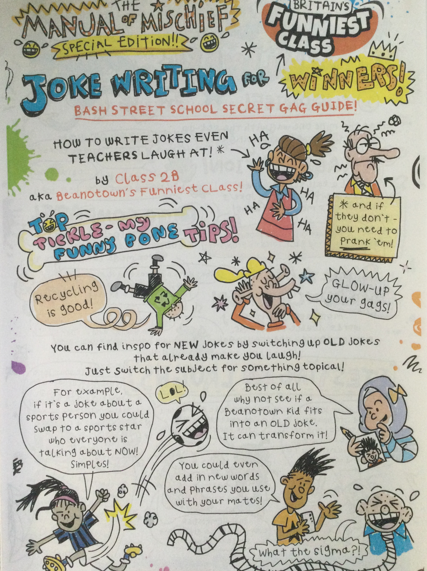 THE
MANUAL OF MISCHIEF
SPECIAL EDITION!!
BRITAIN'S
FUNNIEST
CLASS
JOKE WRITING FOR WINNERS!
BASH STREET SCHOOL SECRET GAG GUIDE!
HOW TO WRITE JOKES EVEN
TEACHERS LAUGH AT! *
by Class 2B
aka Beanotown's Funniest Class!
HA
HA
HA
HA
HA
* and if
they don't -
you need to
Prank 'em!
TOP
TICKLE-MY
FUNNY BONE
TIPS!
Recycling
is good!
GLOW-UP
your gags!
You can find inspo for NEW jokes by switching up OLD jokes
that already make you laugh!
Just switch the subject for something topical!
For example,
if it's a joke about a
sports person you could
swap to a sports star
who everyone is
talking about NOW!
Simples!
LOL!
Best of all
why not see if a
Beanotown kid fits
into an OLD joke.
It can transform it!
You could even
add in new words
and phrases you use
with your mates!
What the sigma?!